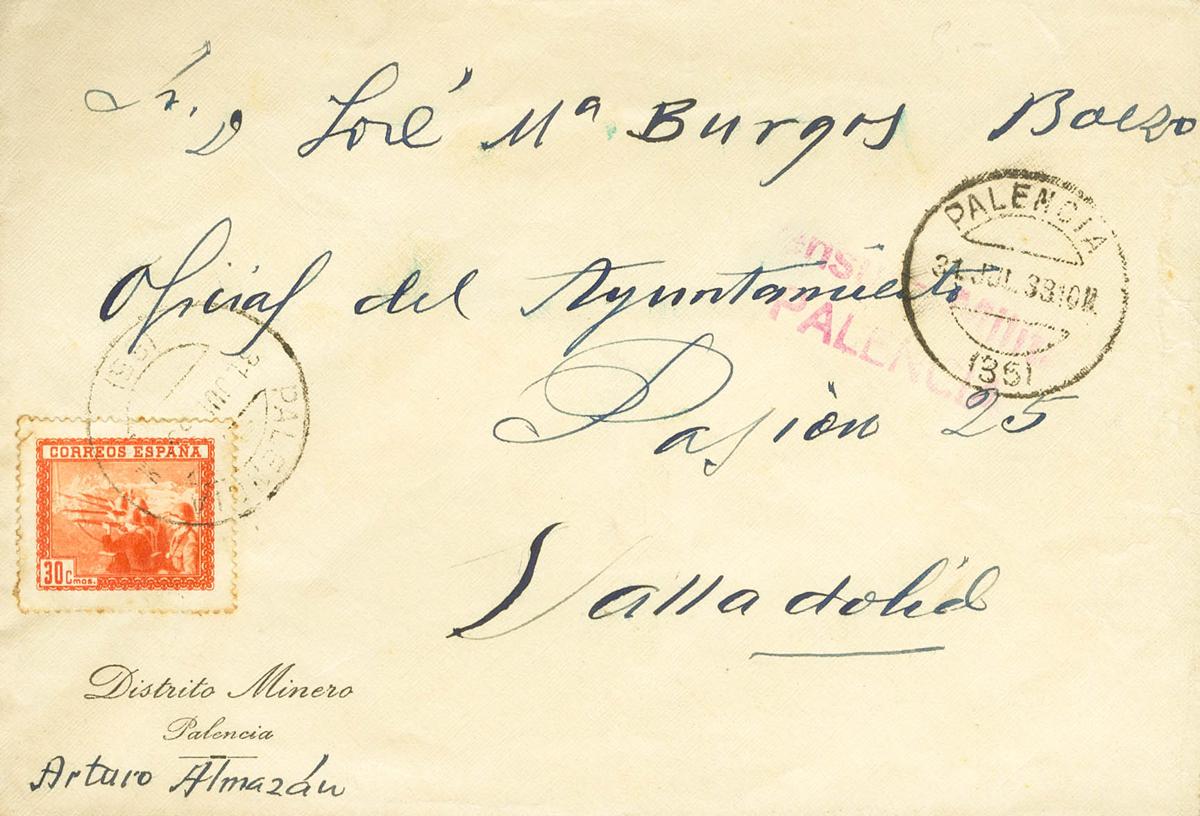 Sr. D José Mª Burgos Boezo
Oficial del Ayuntamiento
Pasión 25
Valladolid
PALENCIA
31 JUL. 38 10M.
(351
PALENCIA
31 JUL
PALENCIA
CORREOS ESPAÑA
30 Cmos.
Distrito Minero
Palencia
Arturo Almazán